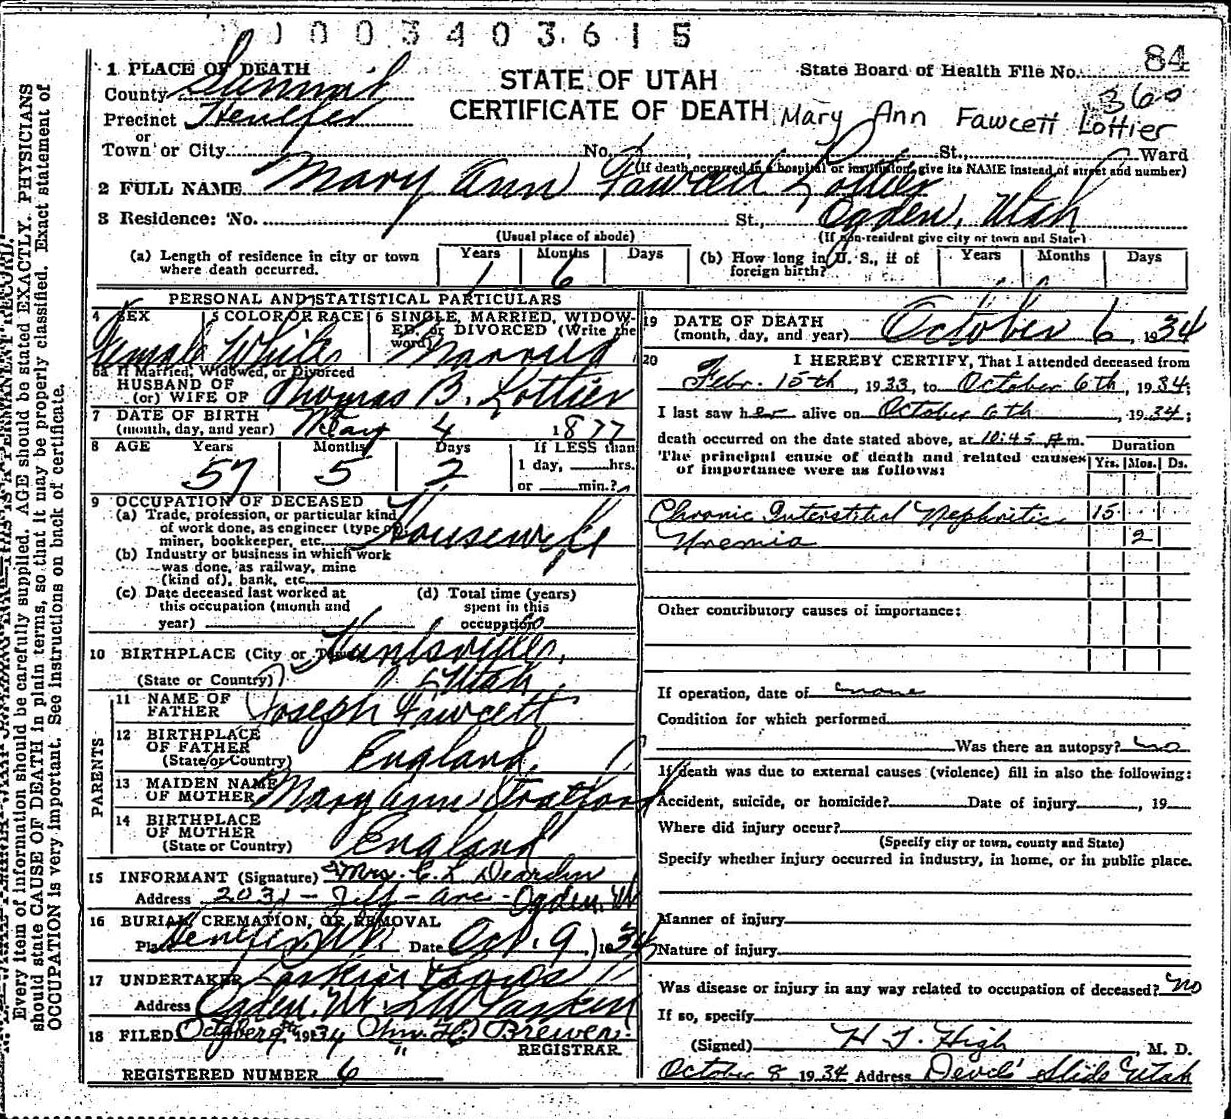 0003403615
84
1 PLACE OF DEATH
County Summit
Precinct Henefer
or
Town or City
STATE OF UTAH
CERTIFICATE OF DEATH
State Board of Health File No.
360
Mary Ann Fawcett Lottier
No. , St., Ward
(If death occurred in a hospital or institution, give its NAME instead of street and number)
2 FULL NAME Mary Ann Fawcett Lottier
3 Residence: No. St., Ogden, Utah
(Usual place of abode) (If non-resident give city or town and State)
(a) Length of residence in city or town where death occurred. Years 1 Months 6 Days
(b) How long in U. S., if of foreign birth? Years Months Days
PERSONAL AND STATISTICAL PARTICULARS
4 SEX Female
5 COLOR OR RACE White
6 SINGLE, MARRIED, WIDOWED, or DIVORCED (Write the word) Married
6a If Married, Widowed, or Divorced
HUSBAND OF
(or) WIFE OF Thomas B. Lottier
7 DATE OF BIRTH
(month, day, and year) May 4 1877
8 AGE Years 57 Months 5 Days 2
If LESS than
1 day, hrs.
or min.?
9 OCCUPATION OF DECEASED
(a) Trade, profession, or particular kind
of work done, as engineer (type of)
miner, bookkeeper, etc. Housewife
(b) Industry or business in which work
was done, as railway, mine
(kind of), bank, etc.
(c) Date deceased last worked at
this occupation (month and
year)
(d) Total time (years)
spent in this
occupation
10 BIRTHPLACE (City or Town) Huntsville,
(State or Country) Utah
PARENTS
11 NAME OF
FATHER Joseph Fawcett
12 BIRTHPLACE
OF FATHER
(State or Country) England.
13 MAIDEN NAME
OF MOTHER Mary Ann
14 BIRTHPLACE
OF MOTHER
(State or Country) England
15 INFORMANT (Signature) Mrs. E. L. Dearden
Address 2031 - Jeff - ave - Ogden, Ut
16 BURIAL, CREMATION, OR REMOVAL
Place Henefer Ut. Date Oct. 9, 1934
17 UNDERTAKER Larkin & Sons
Address Ogden, Ut. Larkin
18 FILED October 9th 1934 Brewer
REGISTRAR
REGISTERED NUMBER 6
19 DATE OF DEATH
(month, day, and year) October 6, 1934
20 I HEREBY CERTIFY, That I attended deceased from
Febr. 15th, 1933, to October 6th, 1934;
I last saw her alive on October 6th, 1934;
death occurred on the date stated above, at 10:45 A.m.
The principal cause of death and related causes
of importance were as follows:
Duration
Yrs. Mos. Ds.
Chronic Interstitial Nephritis 15
Uremia 2
Other contributory causes of importance:
If operation, date of none
Condition for which performed
Was there an autopsy? no
If death was due to external causes (violence) fill in also the following:
Accident, suicide, or homicide? Date of injury , 19
Where did injury occur?
(Specify city or town, county and State)
Specify whether injury occurred in industry, in home, or in public place.
Manner of injury
Nature of injury
Was disease or injury in any way related to occupation of deceased? no
If so, specify
(Signed) H. J. High, M. D.
October 8 1934 Address Devils Slide Utah
Every item of information should be carefully supplied. AGE should be stated EXACTLY. PHYSICIANS
should state CAUSE OF DEATH in plain terms, so that it may be properly classified. Exact statement of
OCCUPATION is very important. See instructions on back of certificate.